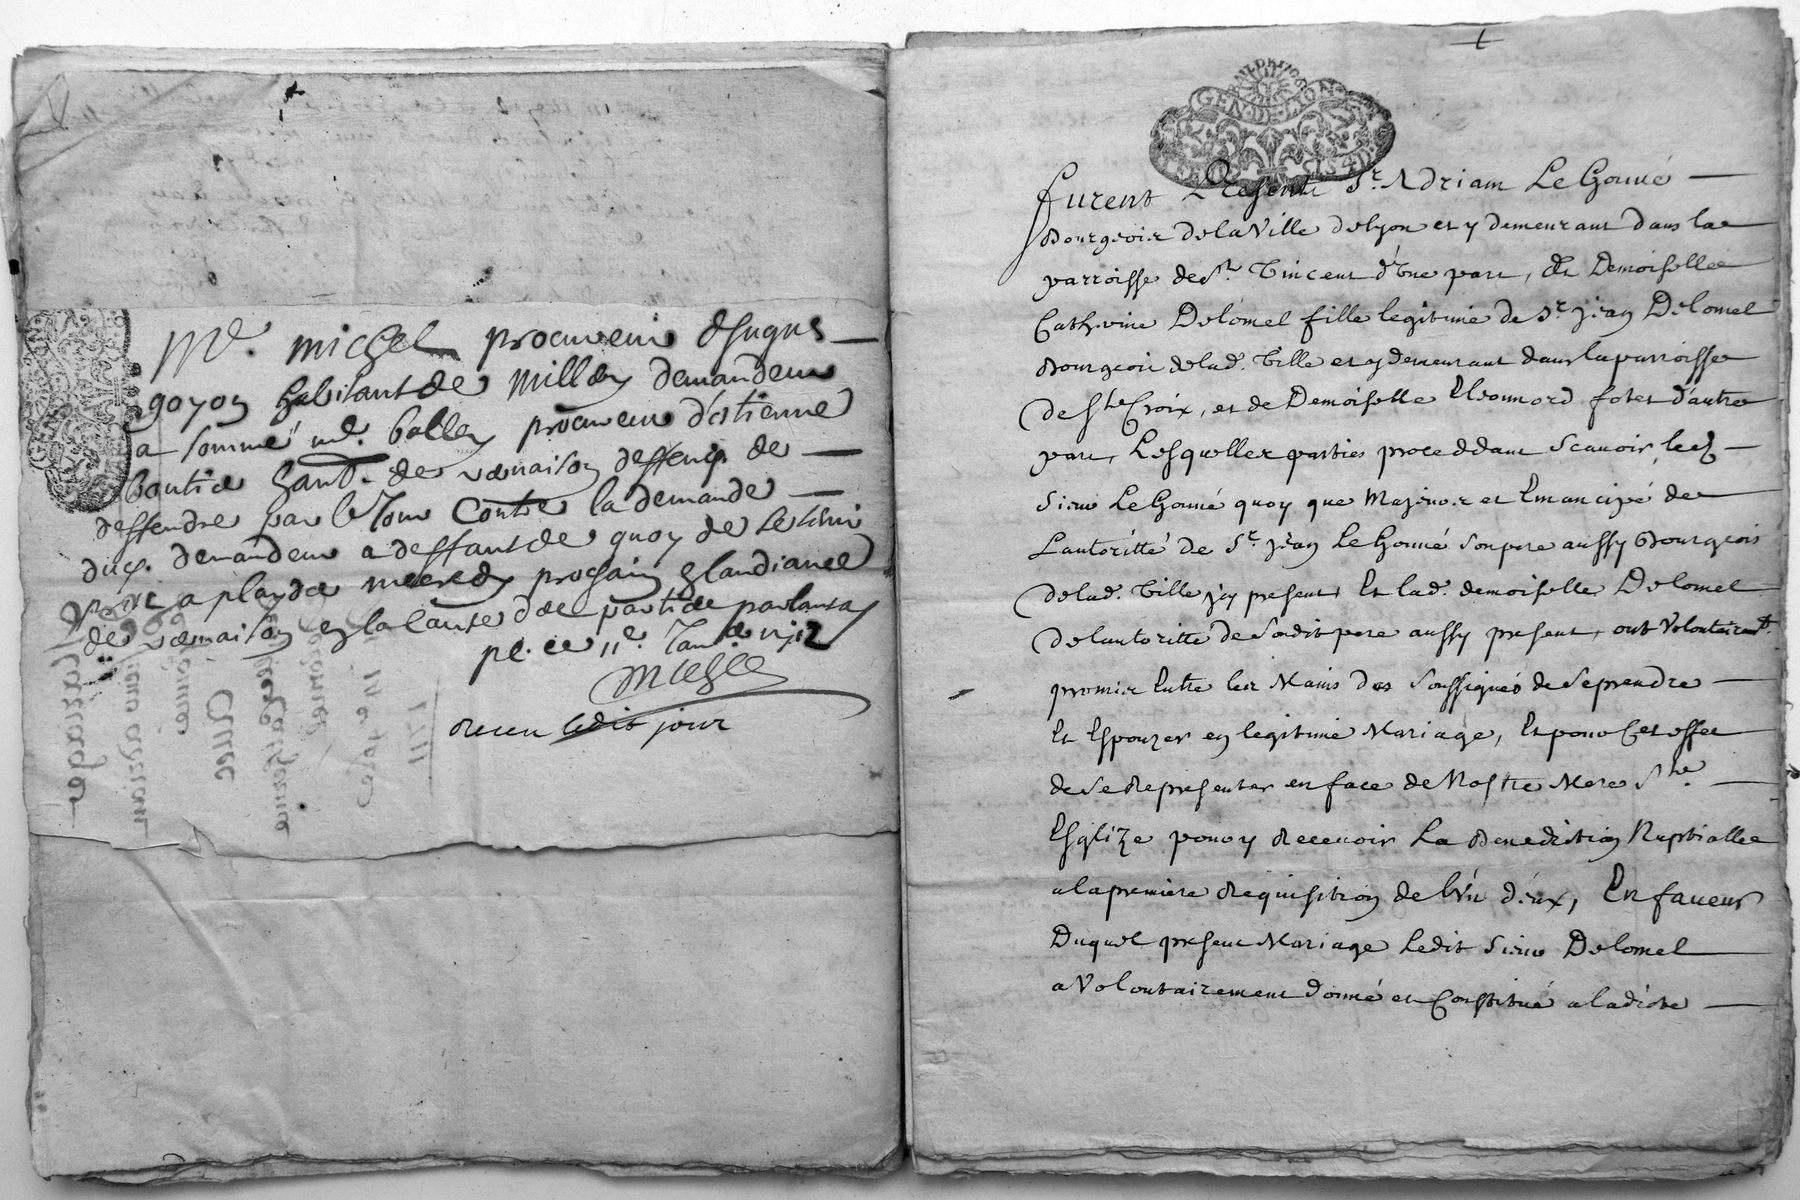 Me. michel procureur d'hugus
goyon habitant de millery demandeur
a sommé me. balley procureur d'estienne
boutie habt. de vernaison deffendr. de
deffendre par le Jour Contre la demande
dud. demandeur a deffaut de quoy de le
a playder mecredy prochain
de vernaison en la cause de partie parlant a
pl. ce 11e. Janr.
michel
receu ledit jour
1711
GEN DE LION
furent Presents Sr. Adriam Le Gouué
Bourgeois de la Ville de lyon et y demeurant dans la
parroisse de St. Vincent d'Une part, Et Demoiselle
Catherine Delomel fille legitime de Sr. jean Delomel
Bourgeois de lad. Ville et y demeurant dans la parroisse
de Ste Croix, et de Demoiselle Eleonnord d'autre
part, Lesquelles parties proceddant Scauoir, led.
Sieur Le Gouué quoy que Majeur et Emancipé de
Lautoritté de Sr. jean Le Gouué Son pere aussy Bourgeois
de lad. Ville jcy present, Et lad. demoiselle Delomel
de lautoritté de Sondit pere aussy present, ont Volontairemt.
promis Entre les Mains des Soussignés de Se prendre
Et Espouzer en legitime Mariage, Et pour Cet effet
de Se Representer en face de Nostre Mere Ste
Esglize pour y Receuoir La Benediction Nuptialle
a la premiere Requisition de l'Vn d'eux, En faueur
Duquel present Mariage Ledit Sieur Delomel
a Volontairement donné et Constitué a ladicte